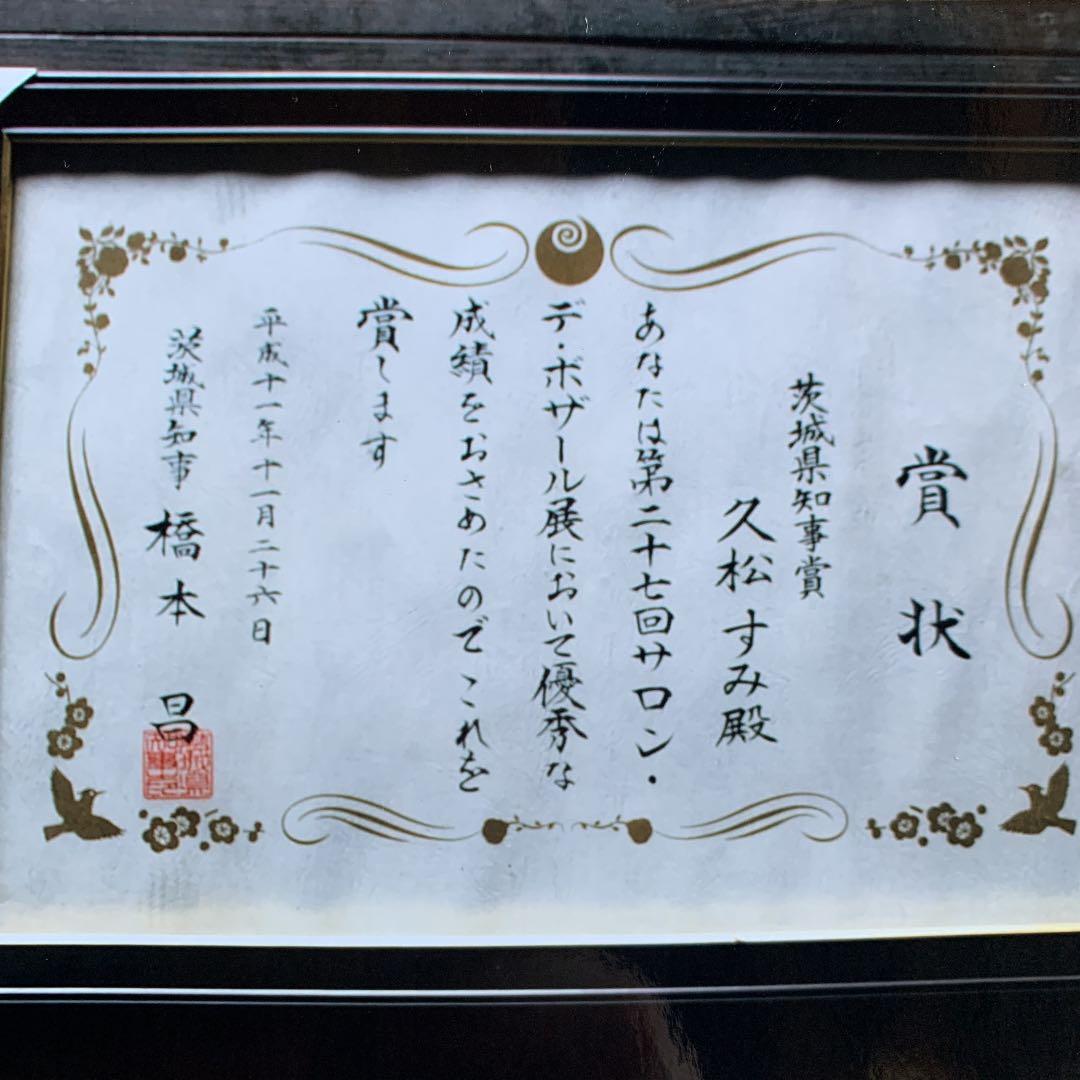 賞状
茨城県知事賞
久松すみ殿
あなたは第二十七回サロン・
デ・ボザール展において優秀な
成績をおさめたのでこれを
賞します
平成十一年十一月二十六日
茨城県知事 橋本 昌